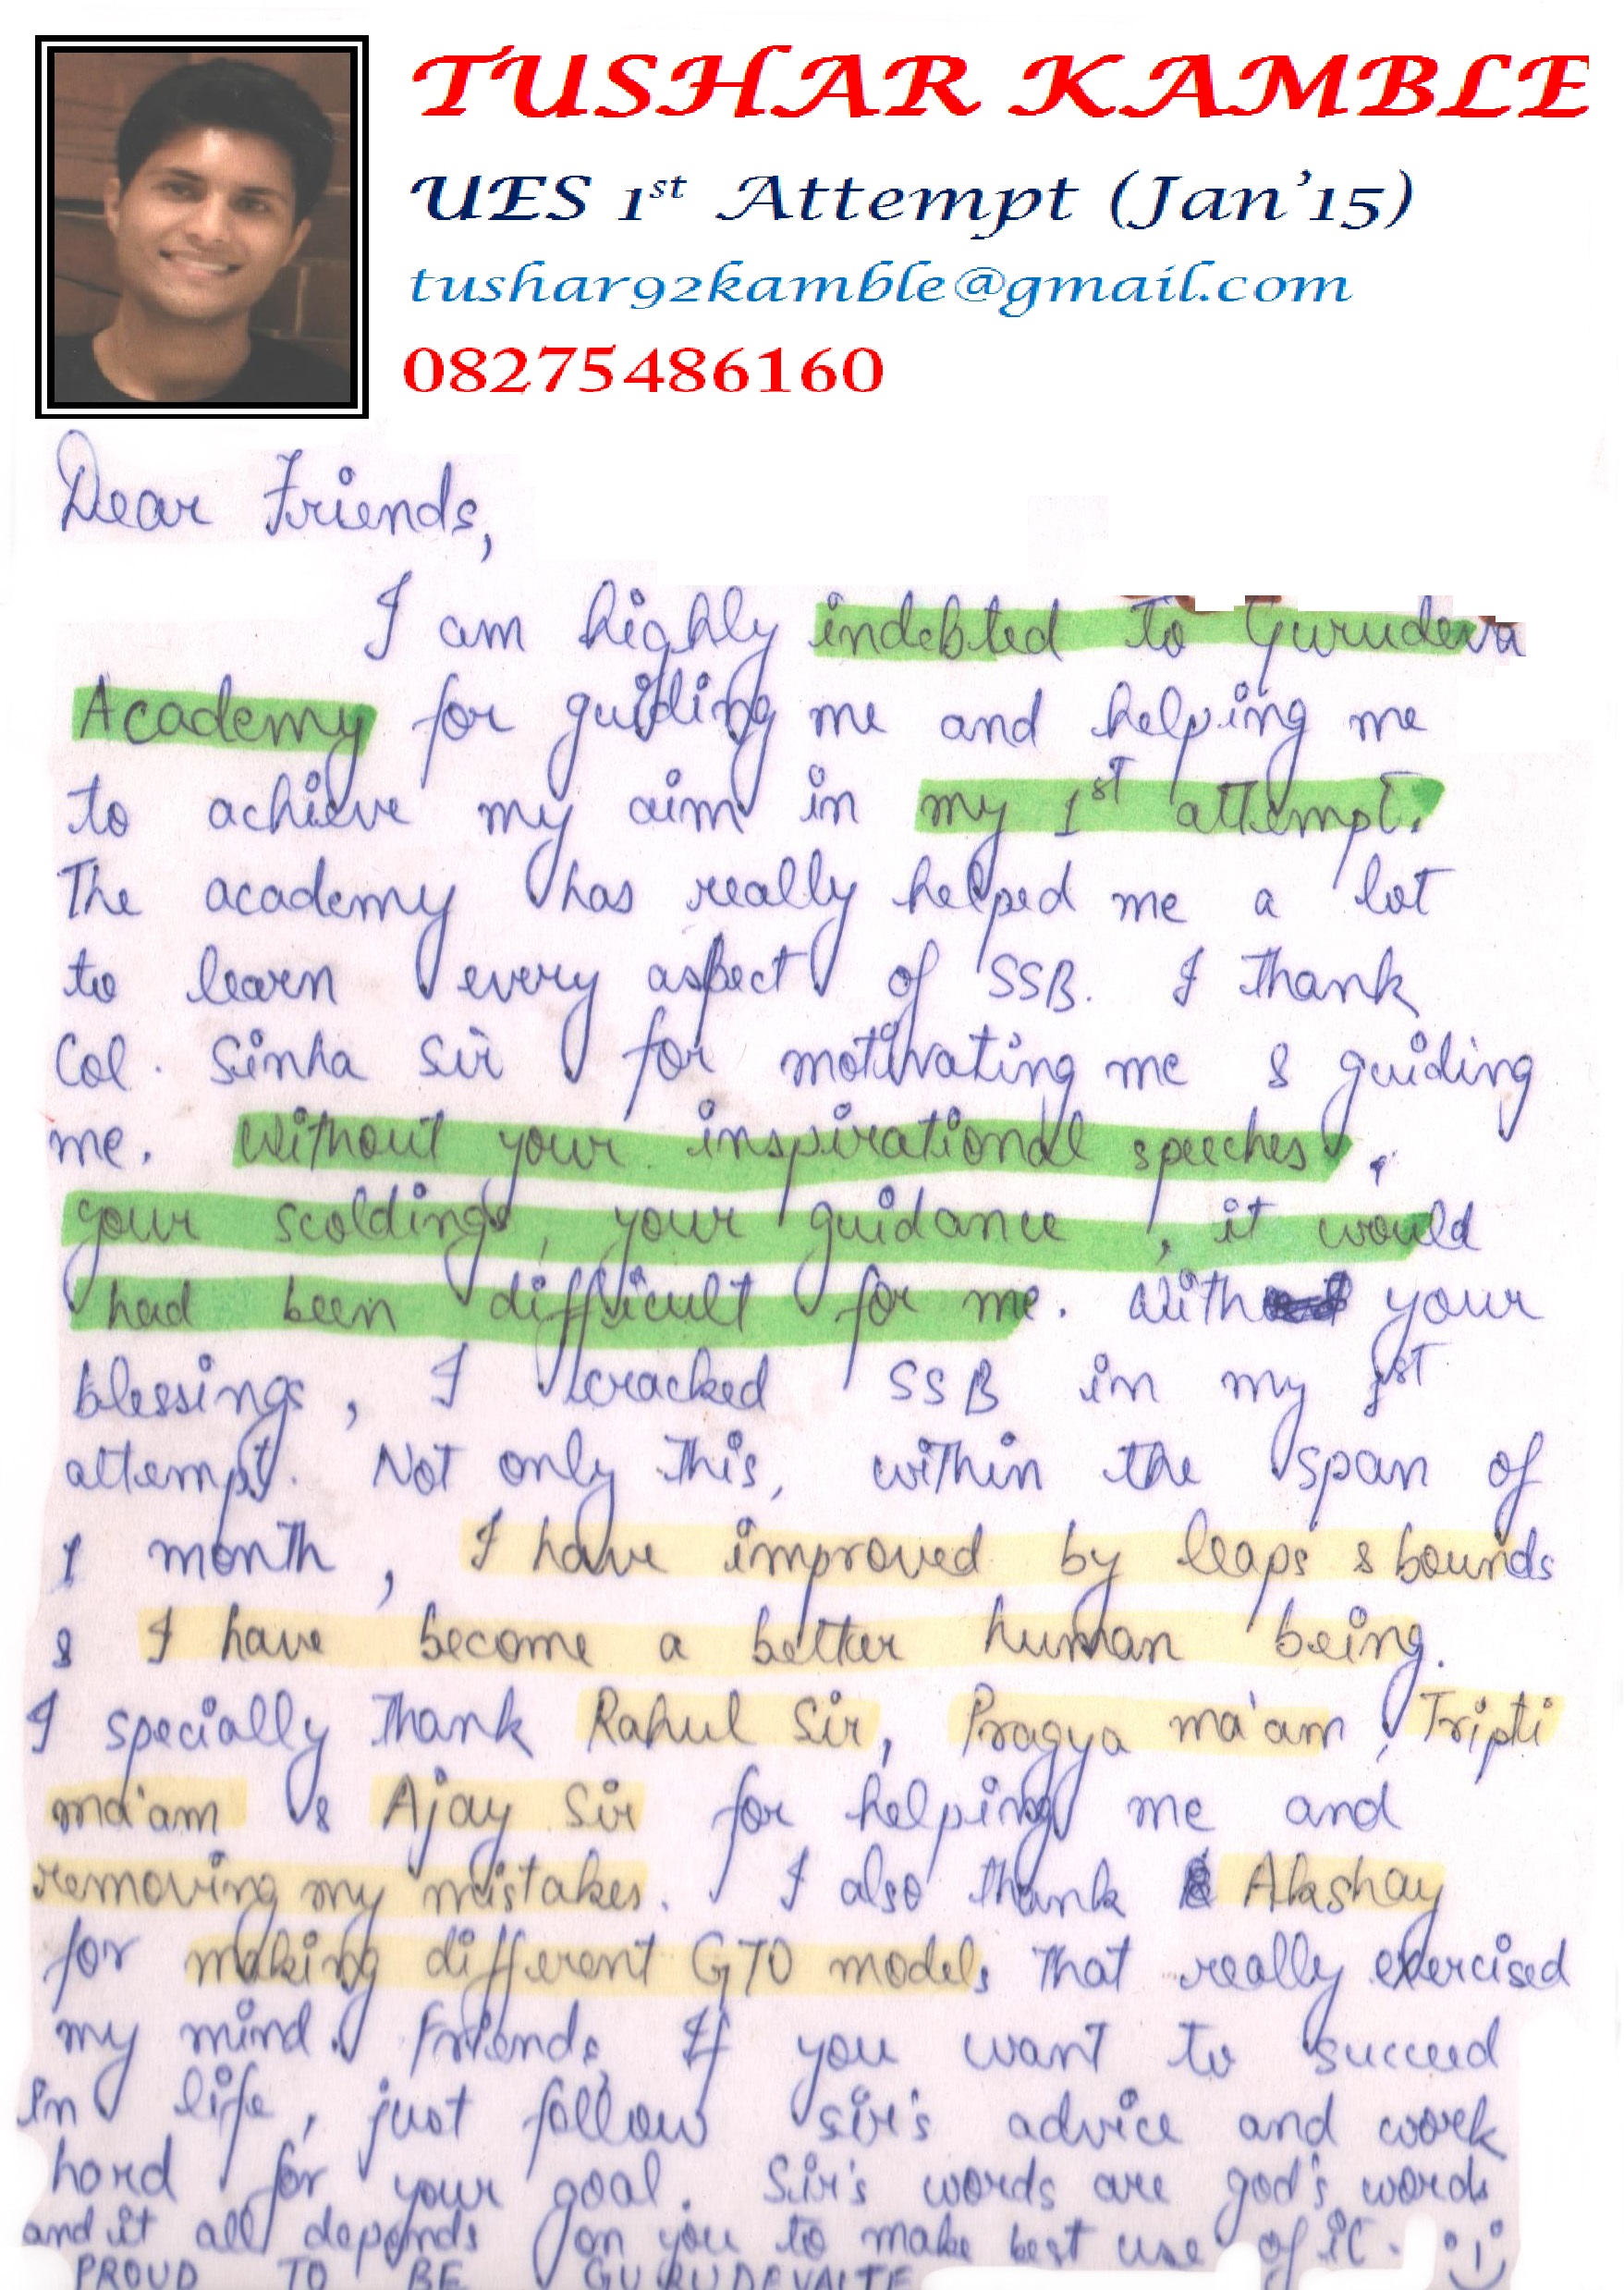 TUSHAR KAMBLE
UES 1st Attempt (Jan'15)
tushar92kamble@gmail.com
08275486160
Dear Friends,
I am highly indebted to Gurudeva
Academy for guiding me and helping me
to achieve my aim in my 1st attempt.
The academy has really helped me a lot
to learn every aspect of SSB. I thank
Col. Sinha Sir for motivating me & guiding
me. Without your inspirational speeches,
your scoldings, your guidance, it would
had been difficult for me. With your
blessings, I cracked SSB in my 1st
attempt. Not only this, within the span of
1 month, I have improved by leaps & bounds
& I have become a better human being.
I specially thank Rahul Sir, Pragya ma'am, Tripti
ma'am & Ajay Sir for helping me and
removing my mistakes. I also thank Akshay
for making different GTO models that really exercised
my mind. Friends, If you want to succeed
in life, just follow sir's advice and work
hard for your goal. Sir's words are god's words
and it all depends on you to make best use of it. :)
PROUD TO BE GURUDEVAITE